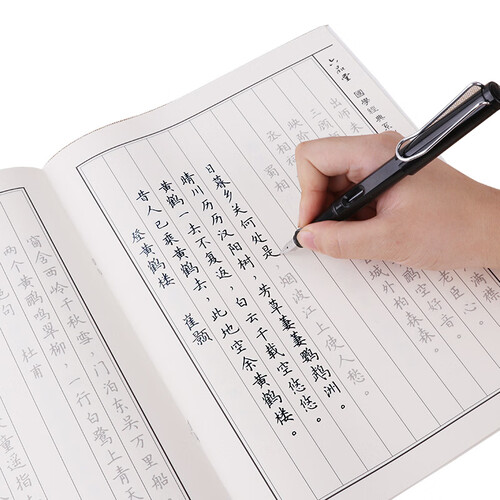 童遥指
绝句 杜甫
两个黄鹂鸣翠柳，一行白鹭上青天
窗含西岭千秋雪，门泊东吴万里船
登黄鹤楼 崔颢
昔人已乘黄鹤去，此地空余黄鹤楼。
黄鹤一去不复返，白云千载空悠悠。
晴川历历汉阳树，芳草萋萋鹦鹉洲。
日暮乡关何处是，烟波江上使人愁。
蜀相
丞相祠 城外柏森森。
映阶 空好音。
三顾 老臣心。
出师未 满
六品堂 國學經典系